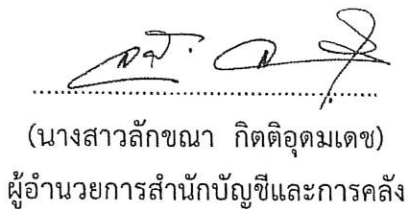 (นางสาวลักขณา กิตติอุดมเดช)
ผู้อำนวยการสำนักบัญชีและการคลัง